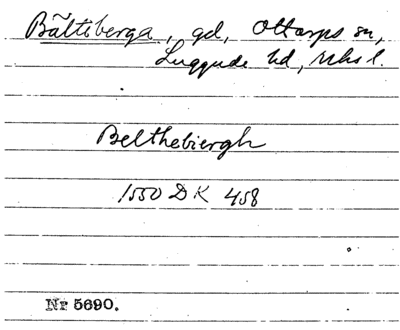 Bältiberga, gd, Ottarps sn,
Luggude hd, Mhs l.
Belthebiergh
1550 DK 458
Nr 5690.